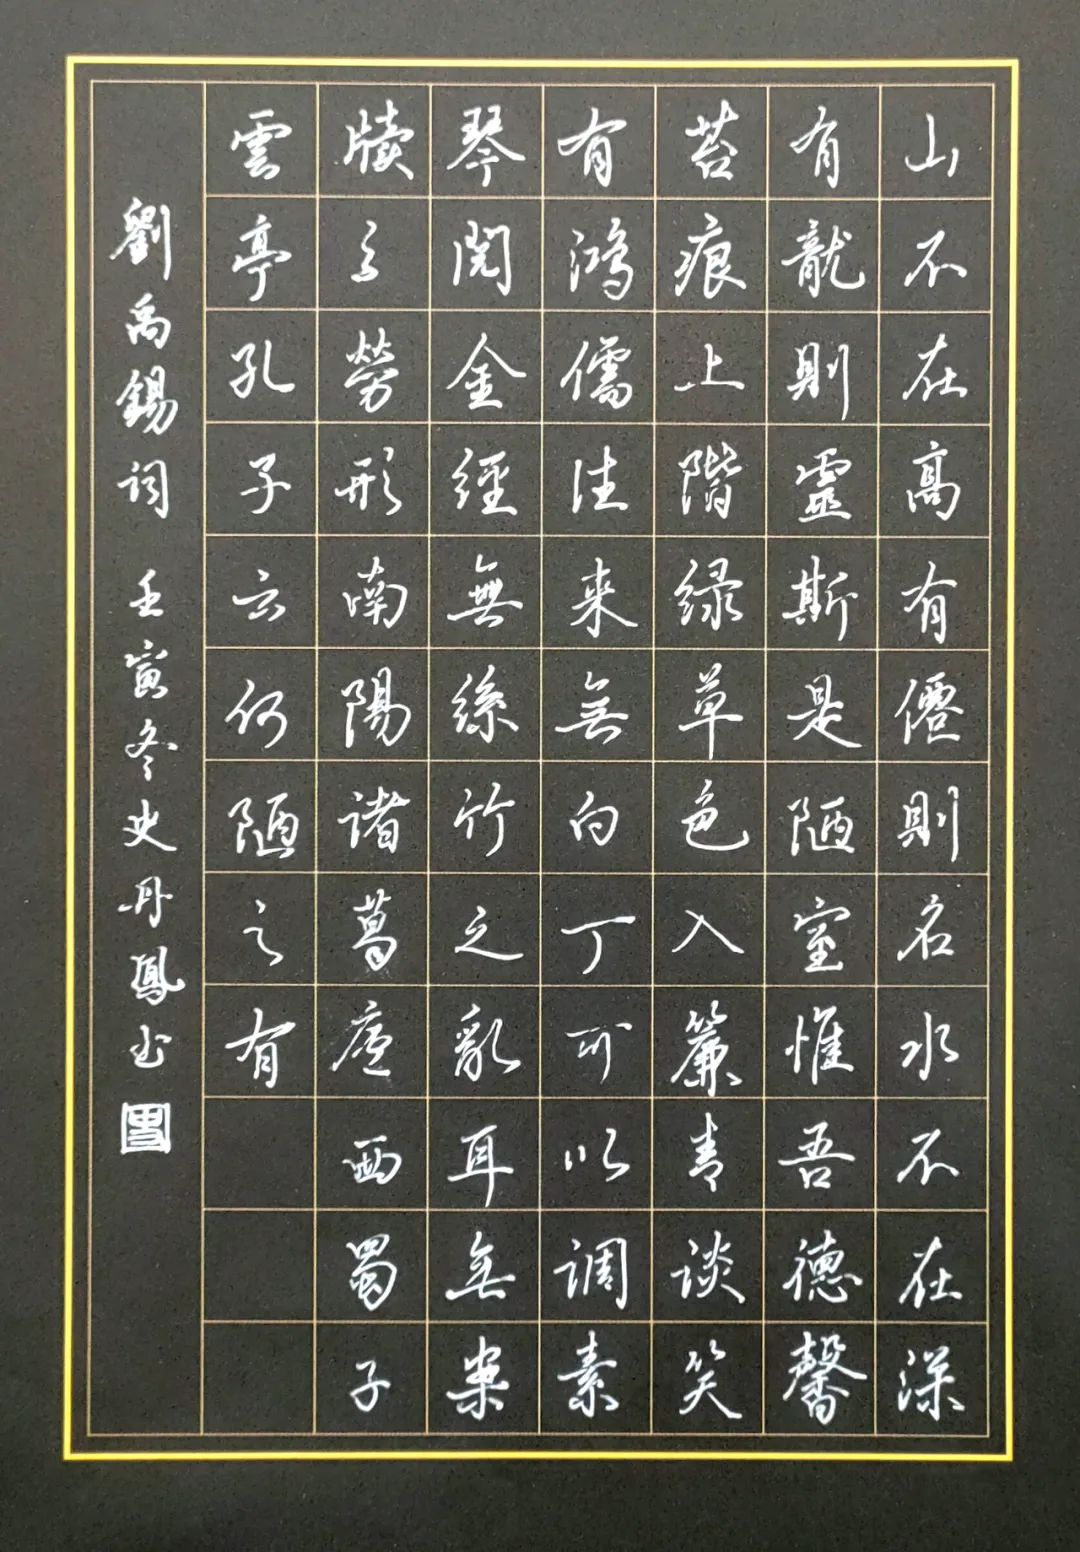 山不在高有僊則名水不在深
有龍則靈斯是陋室惟吾德馨
苔痕上階绿草色入簾青谈笑
有鴻儒往来無白丁可以调素
琴閲金經無絲竹之亂耳無案
牘之勞形南陽诸葛廬西蜀子
雲亭孔子云何陋之有
劉禹錫词 壬寅冬史丹鳳书